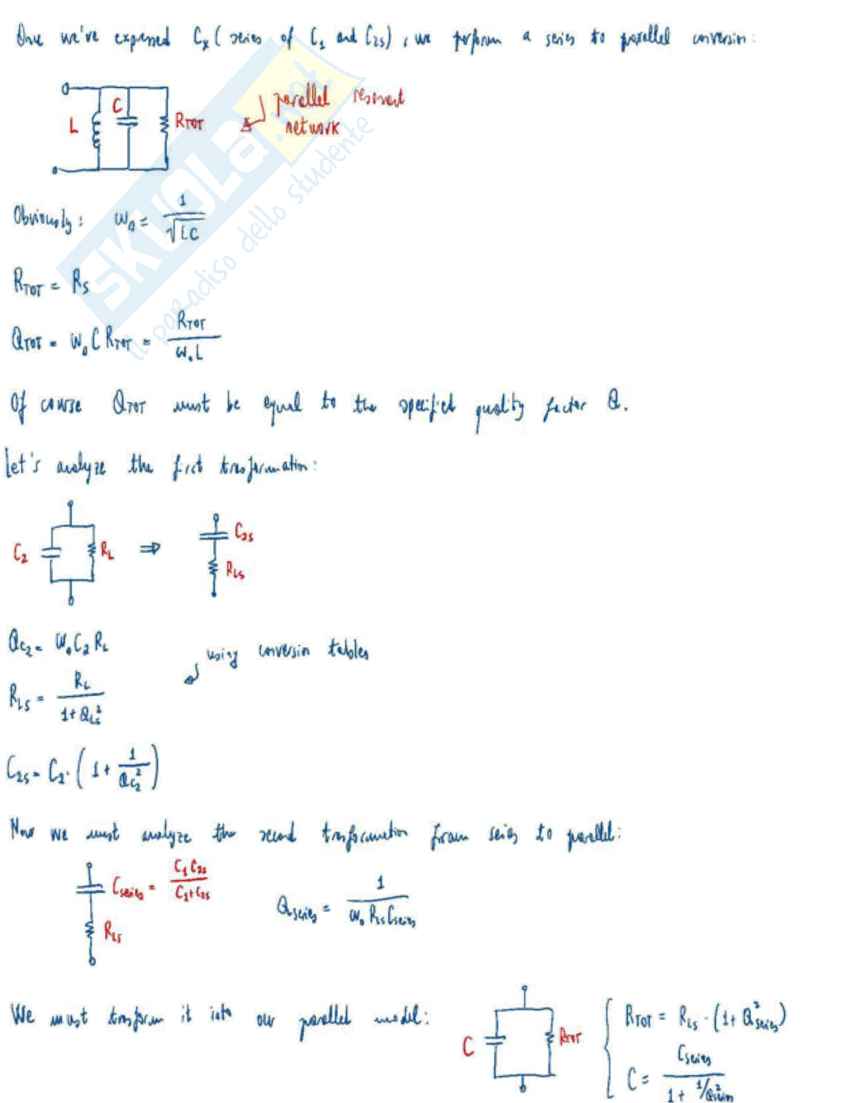 Once we've expressed Cx (series of C1 and C2S), we perform a series to parallel conversion:
L C RTOT parallel resonant
network
SKUOLA.net
il paradiso dello studente
Obviously: ω0 = 1/√LC
RTOT = RS
QTOT = ω0 C RTOT = RTOT/ω0L
Of course QTOT must be equal to the specified quality factor Q.
Let's analyze the first transformation:
C2 RL ⇒ C2S RLS
QC2 = ω0 C2 RL
using conversion tables
RLS = RL/(1+QC2²)
C2S = C2·(1 + 1/QC2²)
Now we must analyze the second transformation from series to parallel:
Cseries = C1C2S/(C1+C2S)
RLS
Qseries = 1/(ω0 RLS Cseries)
We must transform it into our parallel model:
C RTOT
RTOT = RLS·(1+Q²series)
C = Cseries/(1 + 1/Q²series)